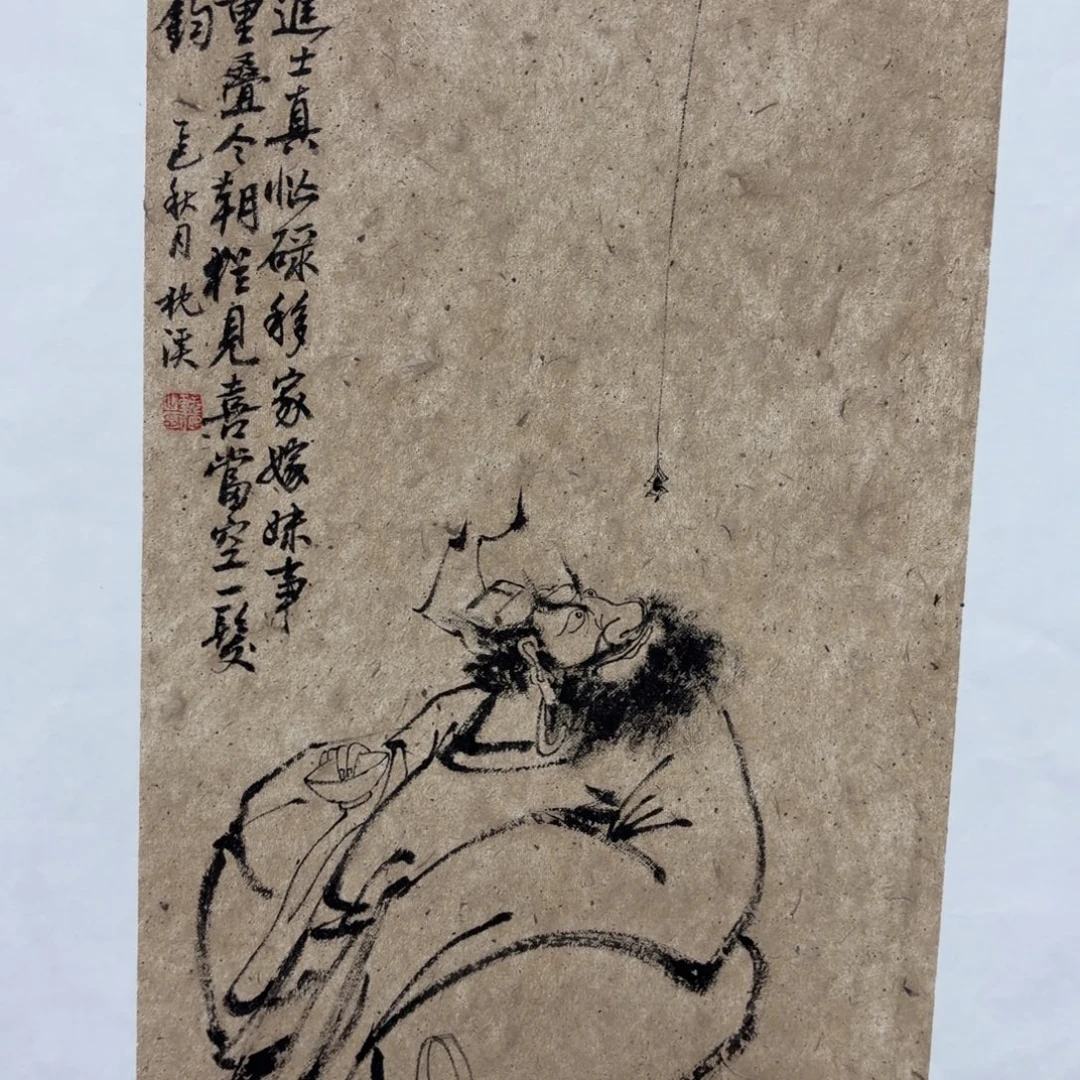 進士真忙碌移家嫁妹事
重疊今朝程見喜當空一髮
鈞
秋月 枕溪